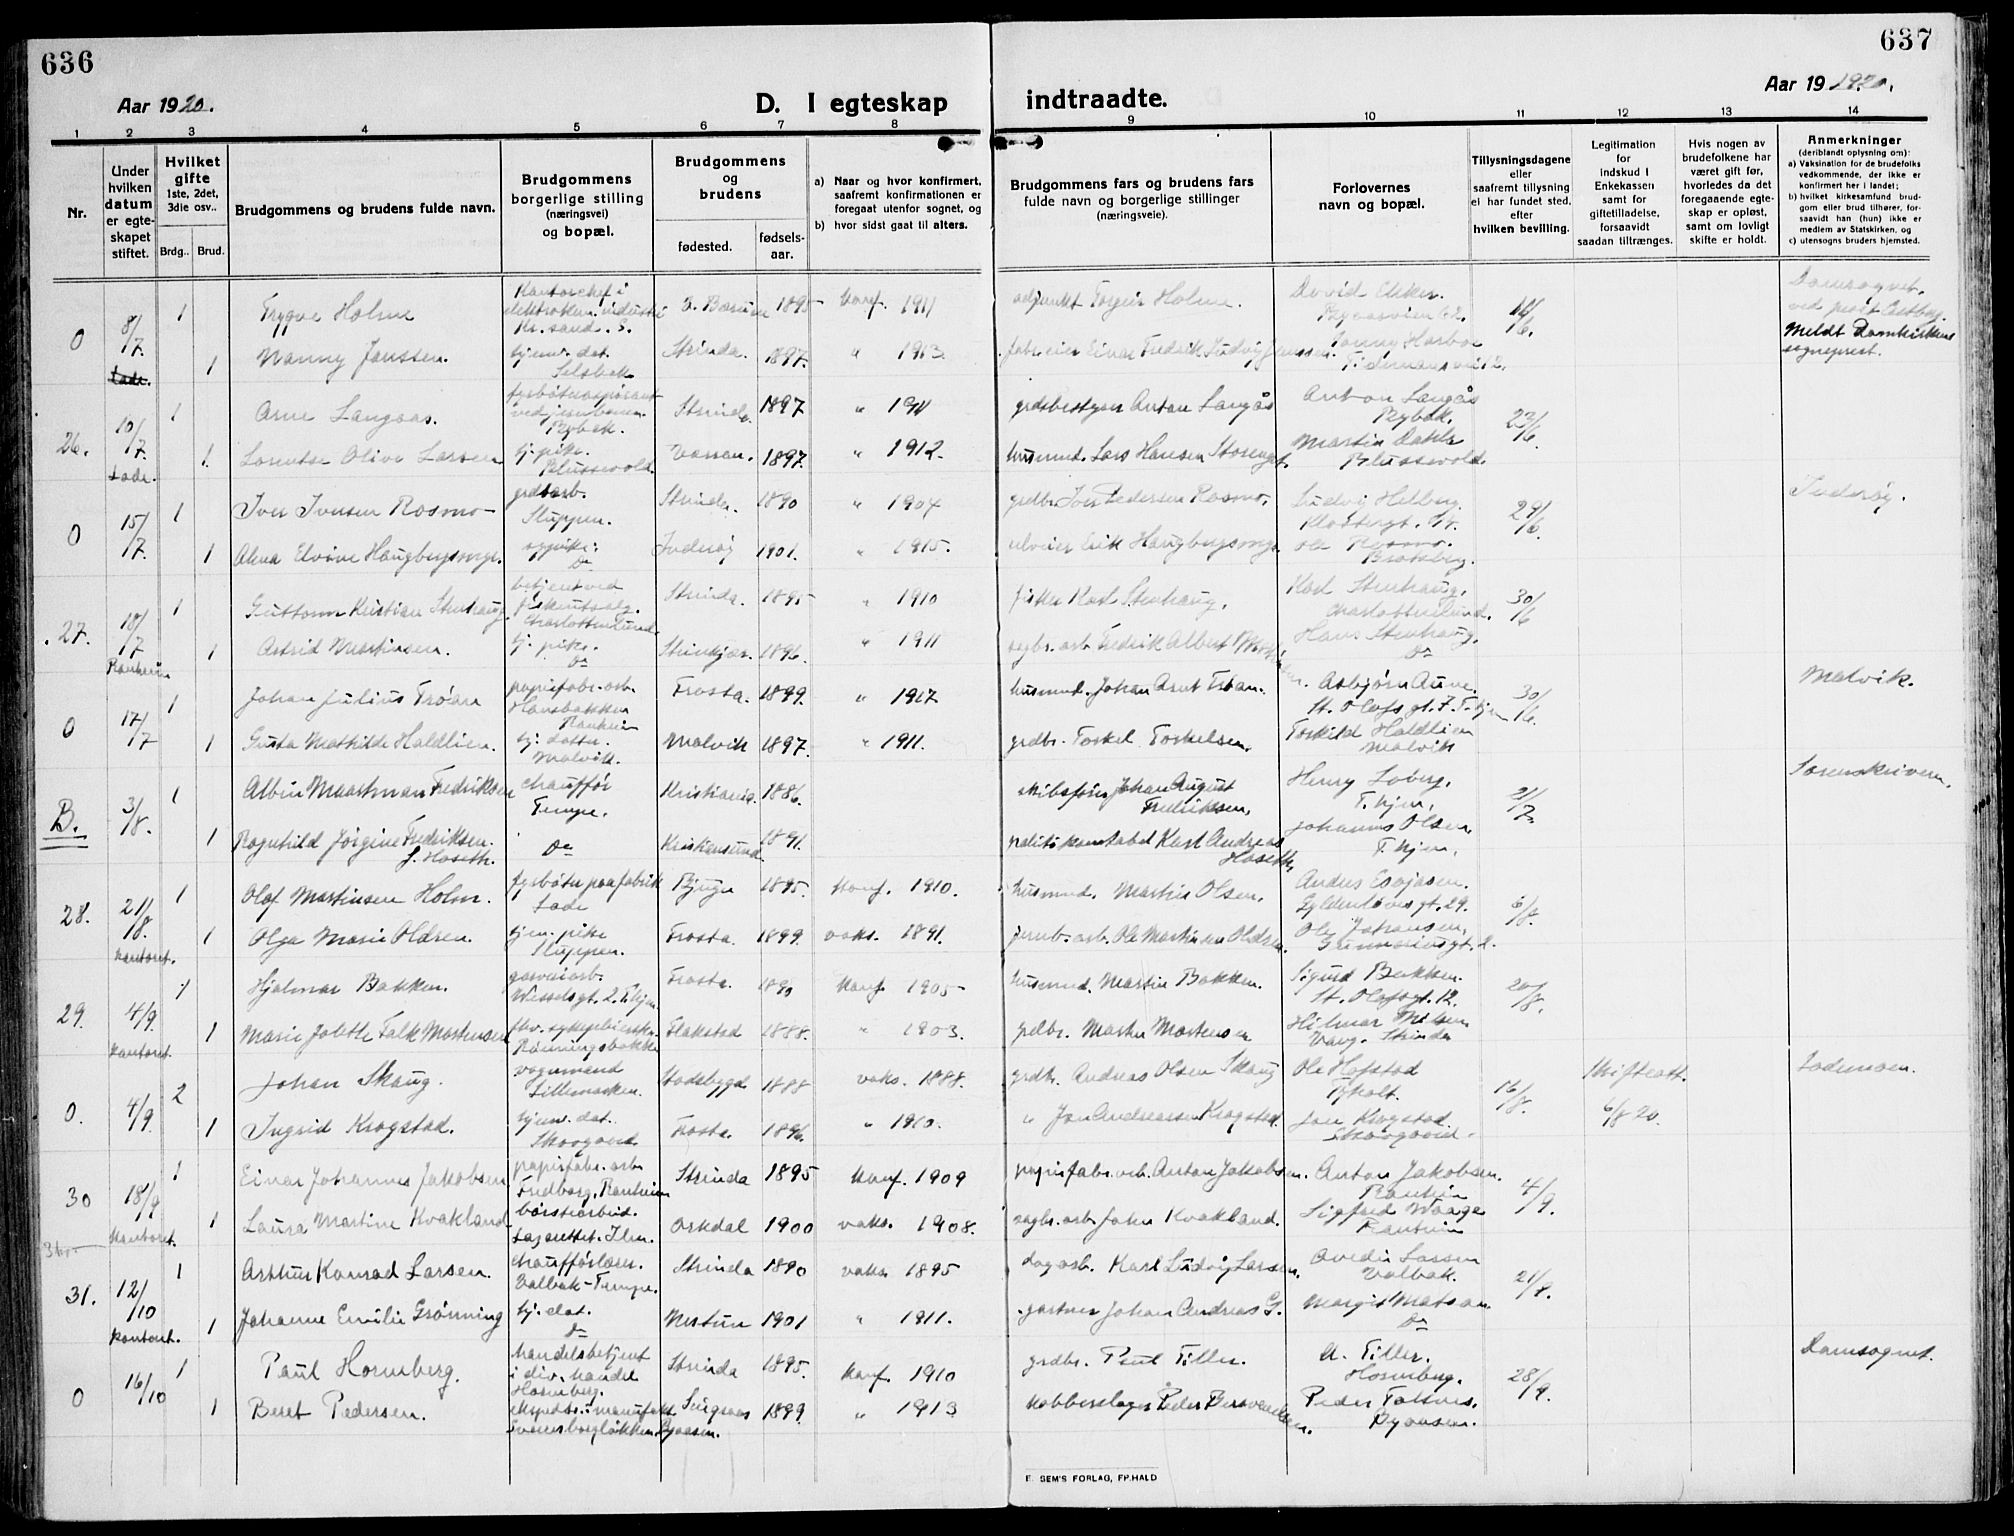 636
637
Aar 1920.
D. I egteskap indtraadte.
Aar 19 1920.
1 2 3 4 5 6 7 8 9 10 11 12 13 14
Nr.
Under hvilken datum er egteskapet stiftet.
Hvilket gifte 1ste, 2det, 3die osv..
Brdg.. Brud.
Brudgommens og brudens fulde navn.
Brudgommens borgerlige stilling (næringsvei) og bopæl.
Brudgommens og brudens
fødested. fødsels-aar.
a) Naar og hvor konfirmert, saafremt konfirmationen er foregaat utenfor sognet, og
b) hvor sidst gaat til alters.
Brudgommens fars og brudens fars fulde navn og borgerlige stillinger (næringsveie).
Forlovernes navn og bopæl.
Tillysningsdagene eller saafremt tillysning ei har fundet sted, efter hvilken bevilling.
Legitimation for Indskud i Enkekassen samt for giftetilladelse, forsaavidt saadan tiltrænges.
Hvis nogen av brudefolkene har været gift før, hvorledes da det foregaaende egteskap er opløst, samt om lovligt skifte er holdt.
Anmerkninger (deriblandt oplysning om):
a) Vaksination for de brudefolks vedkommende, der ikke er konfirmert her i landet;
b) hvilket kirkesamfund brudgom eller brud tilhører, forsaavidt han (hun) ikke er medlem av Statskirken, og
c) utensogns bruders hjemsted.
0 8/7 1 Trygve Holme Kontorchef i elektrokem. industri Kr.sand. S. V. Bærum 1895 konf. 1911 adjunkt Torgeir Holme. David Ekker. 14/6. Domsognet.
Lade. 1 Nanny Janssen. hjem. dat. Selsbak Strinda. 1897. " 1913. fabr.eier Einar Fredrik Ludvig Janssen. Meldt Domkirkens sogneprest.
26. 10/7 1 Arne Langaas. Rybak. Strinda 1897 " 1911 grdbestyrer Anton Langås Anton Langås Rybak. 23/6.
Lade. 1. Lorentse Olive Larsen tj. pike. Blussevold. 1897. " 1912. husmnd. Lars Hansen Martin Dahle Blussevold.
0 15/7 1 Iver Iversen Rosmo grdsarb. Sluppen. Strinda. 1890 " 1904 grdbr. Iver Pedersen Rosmo, Ludvig Helberg. 29/6. Inderøy.
1 Alma Elvine Haugbergsmyr. sypike. Do Inderøy 1901. " 1915. Erik Haugbergsmyr. Ole Rosmo. Bratsberg.
27. 10/7 1 Guttorm Kristian Stenhaug. betjent ved fiskeutsalg. Charlottenlund. Strinda. 1895 " 1910 fisker Karl Stenhaug. Karl Stenhaug, Charlottenlund. 30/6
Ranheim 1 Astrid Martinsen. tj. pike. Do Steinkjær. 1896. " 1911 sagbr. arb. Fredrik Albert Martinsen. Hans Stenhaug. Do
0 17/7 1 Johan Julius Trøan papirfabr. arb. Hansbakken Ranheim Frosta. 1899. " 1917 husmnd. Johan Arnt Trøan. Asbjørn Aune. St. Olafs gt. 7. T.hjem 30/6. Malvik.
1 Gusta Mathilde Haldlien. tj. datter. Malvik. Malvik 1897. " 1911. grdbr. Torkel Torkelsen. Torkild Haldlien Malvik
B. 3/8. 1 Albin Maartman Fredriksen chauffør Tempe. Kristiania. 1886. skibsfører Johan August Fredriksen, Henry Loberg, T.hjem, 21/7. Sorenskriveren.
1 Ragnhild Jørgine Fredriksen. f. Hoseth. Do Kristiansund. 1891. politikonstabel Karl Andreas Hoseth, Johannes Olsen, T.hjem,
28. 21/8. 1 Olaf Martinsen Holm. fyrbøter paa fabrik Lade Bjugn 1895. konf. 1910. husmnd. Martin Olsen, Anders Esajasen. Gyldenløves gt. 29. 6/8.
kontoret. 1 Olga Marie Oldren. hjem. pike Sluppen. Frosta. 1899. vaks. 1891. jernb. arb. Ole Martinsen Oldren. Ole Johansen,
29. 4/9. 1 Hjalmar Bakken. Wesselsgt. 2. T.hjem Frosta. 1890 konf. 1905 husmnd. Martin Bakken. Sigurd Bakken. St. Olafsgt. 12. 20/8.
kontoret. 1 Marie Jolette Falk Mortensen Rønningsbakke Flakstad 1888. " 1903. grdbr. Morten Mortensen Hilmar Nielsen Strinda
0. 4/9. 2 Johan Skaug. vognmand Lillemarken. Stadsbygd 1888 vaks. 1888. grdbr. Andreas Olsen Skaug Ole Hofstad 16/8. Skifteatt. 6/8 20. Lademoen.
1 Ingrid Krogstad. hjem. dat. Skovgaard. Frosta. 1896. " 1910. " Jon Andreassen Krogstad. Jon Krogstad. Skovgaard.
30 18/9 1 Einar Johannes Jakobsen papirfabr. arb. Fredborg, Ranheim Strinda 1895 konf. 1909 papirfabr. arb. Anton Jakobsen. Anton Jakobsen. Ranheim 4/9.
kontoret. 1 Laura Martine Kvakland børstearbeid. Lazarettet. Ilen. Orkdal 1900 vaks. 1908. sagbr. arb. John Kvakland. Sigfred Waage Ranheim
31. 12/10 1 Arthur Konrad Larsen. chaufførlærer. Valbak - Tempe. Strinda 1890 vaks. 1895 dagarb. Karl Ludvig Larsen. Larsen Valbak. 21/9.
kontoret. 1 Johanne Emilie Grønning tj. dat. Do Nestun 1901 " 1911. gartner Johan Andreas G. Margit Matson. Do
0 16/10 1 Paul Hornberg. handelsbetjent i div. handel Hornberg. Strinda 1895. konf. 1910 grdbr. Paul Tiller. A. Tiller. Hornberg. 28/9. Domsognet.
1 Beret Pedersen. Singsaas 1899. " 1913 kobberslager Peder Peder
E. SEM'S FORLAG, FR.HALD